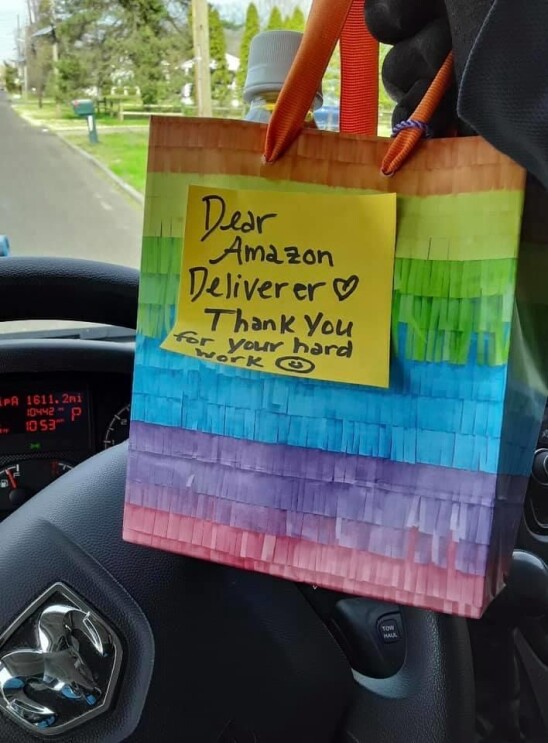 Dear
Amazon
Deliverer ♡
Thank You
for your hard
work ☺
1611.2mi
10442
P
10:53
TOW
HAUL